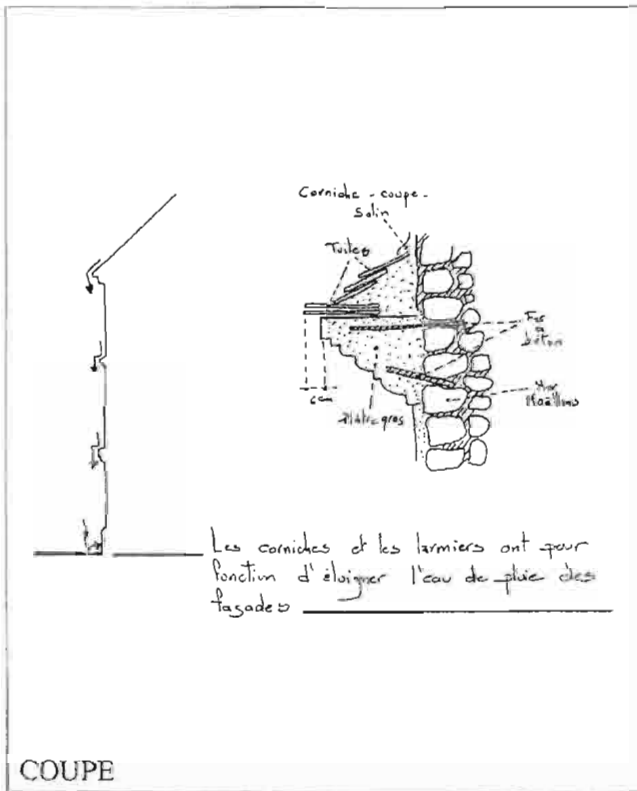 Corniche - coupe -
Solin
Tuiles
Fer
à
béton
Mur
Moëllons
6 cm
plâtre gros
Les corniches et les larmiers ont pour
fonction d'éloigner l'eau de pluie des
façades
COUPE